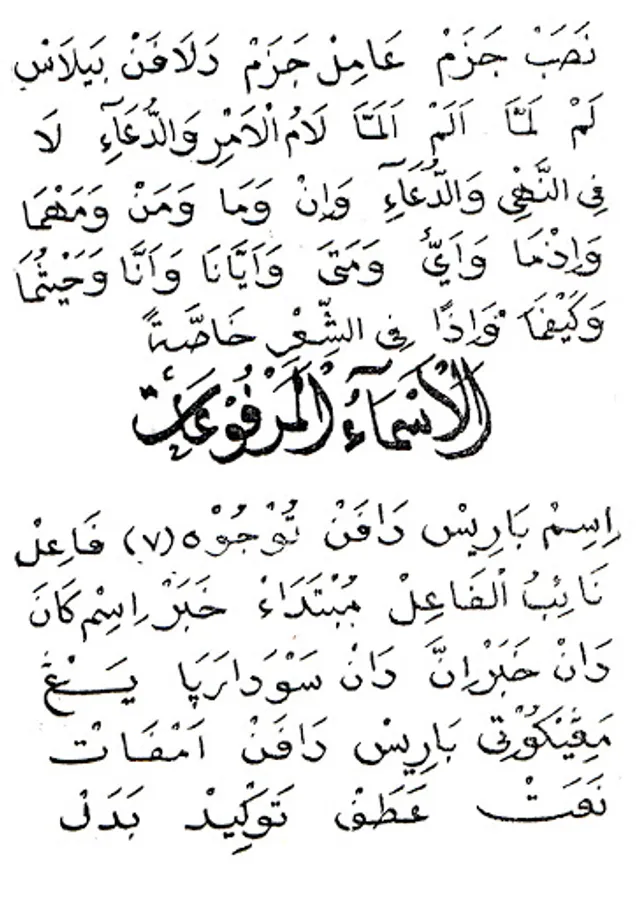 نَصَبْ جَزَمْ عَامِلْ جَزَمْ دَلَافَنْ بَيلَاسْ
لَمْ لَمَّا اَلَمْ اَلَمَّا لَامُ الْاَمْرِ وَالدُّعَآءِ لَا
فِى النَّهْىِ وَالدُّعَآءِ وَاِنْ وَمَا وَمَنْ وَمَهْمَا
وَاِذْمَا وَاَيٌّ وَمَتَى وَاَيَّانَا وَاَنَّا وَحَيْثُمَا
وَكَيْفَمَا وَاِذًا فِى الشِّعْرِ خَاصَّةً
اَلْاَسْمَآءُ الْمَرْفُوْعَاتُ
اِسِمْ بَارِيْسْ دَافَنْ تُوْجُوْه (٧) فَاعِلْ
نَائِبُ الْفَاعِلْ مُبْتَدَاءْ خَبَرْ اِسْم كَانَ
دَانْ خَبَرْ اِنَّ دَانْ سَوْدَارَيَا يَـــڠْ
مَڠِيْكُوْتِى بَارِيْسْ دَافَنْ اَمْفَاتْ
نَعَتْ عَطَفْ تَوْكِيدْ بَدَلْ